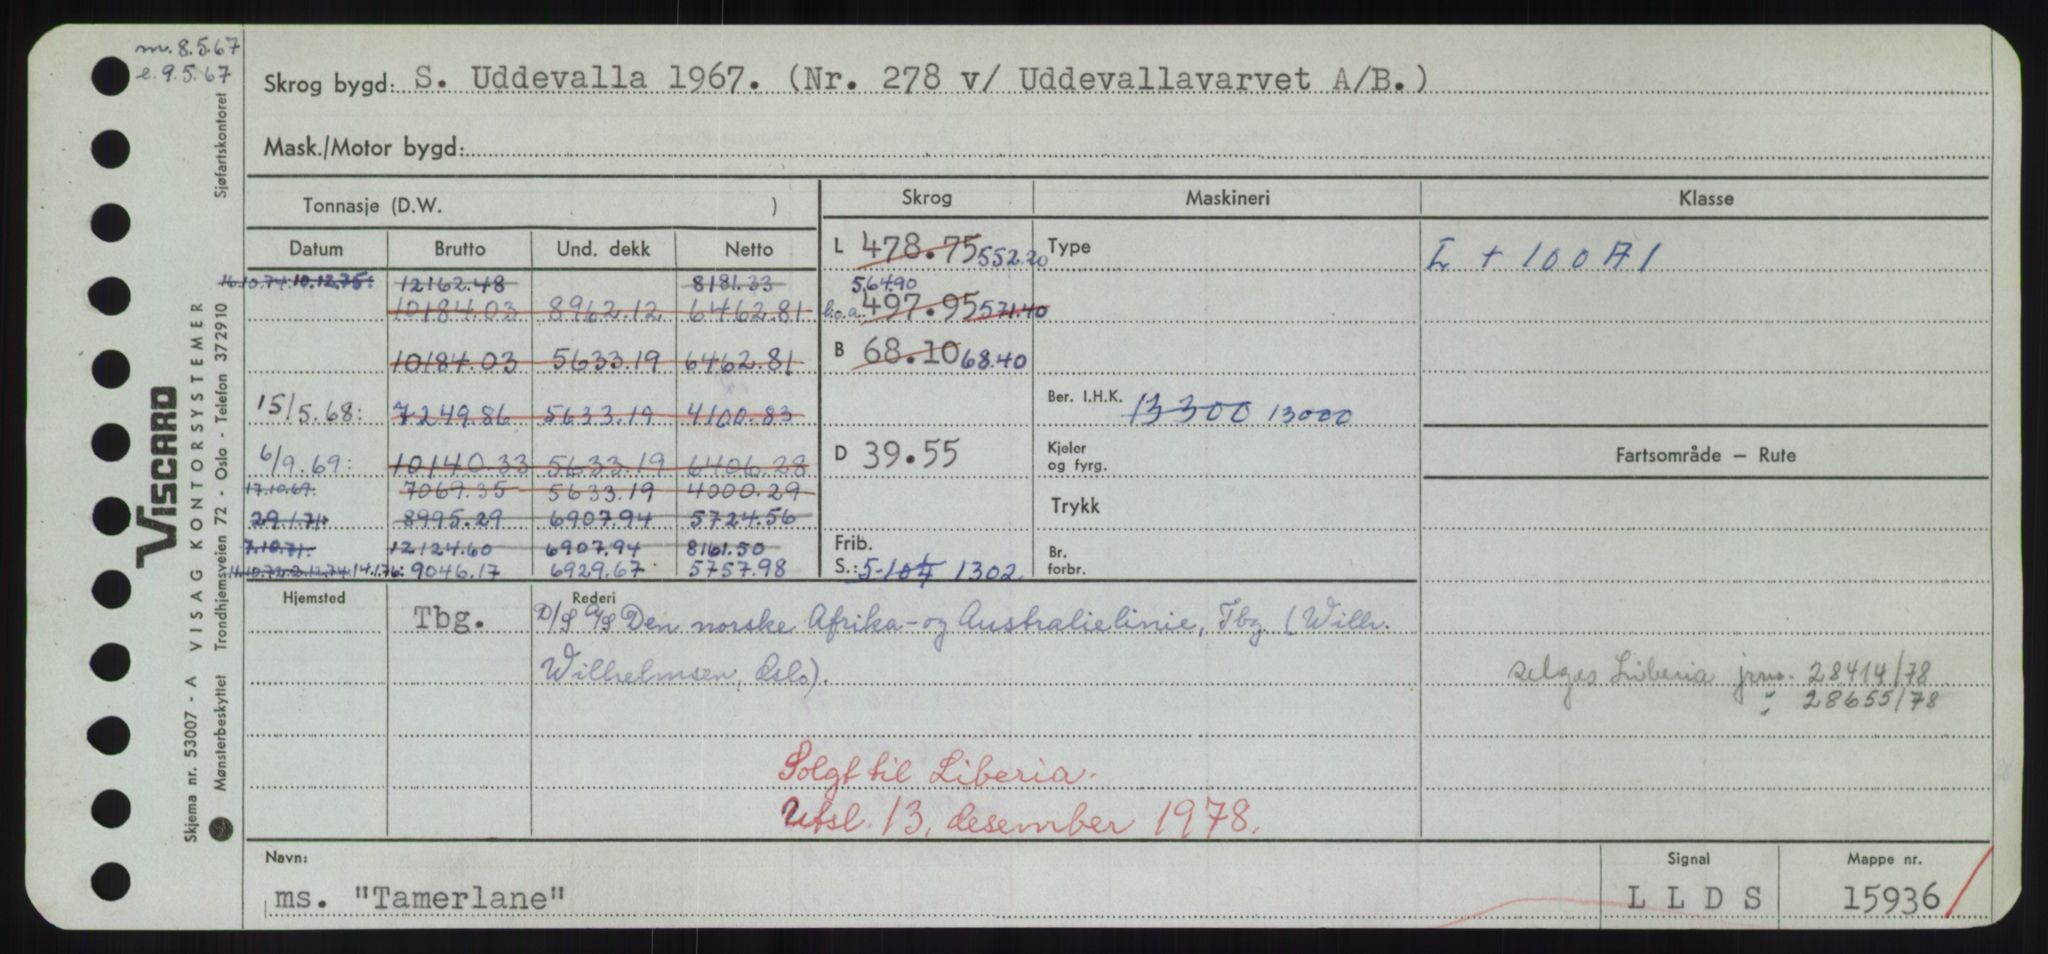 m. 8.5.67
e. 9.5.67
Skrog bygd: S. Uddevalla 1967. (Nr. 278 v/ Uddevallavarvet A/B.)
Mask./Motor bygd:
Tonnasje (D.W. )
Skrog Maskineri Klasse
Datum Brutto Und. dekk Netto
L 478.75 552.20 Type
Ł + 100 A1
16.10.74. 10.12.75: 12162.48 8181.33
564.90
10184.03 8962.12 6462.81 l.o.a. 497.95 571.40
10184.03 5633.19 6462.81 B 68.10 68.40
15/5.68: 7249.86 5633.19 4100.83
Ber. I.H.K. 13300 13000
6/9.69: 10140.33 5633.19 6406.28 D 39.55
Kjeler og fyrg.
Fartsområde – Rute
17.10.69. 7069.35 5633.19 4000.29
Trykk
29.1.71: 8995.29 6907.94 5724.56
7.10.71: 12124.60 6907.94 8161.50
Frib.
Br. forbr.
11.10.72. 2.12.74. 14.1.76: 9046.17 6929.67 5757.98 S.: 5-10¼ 1302
Hjemsted Tbg.
Rederi
D/S A/S Den norske Afrika- og Australielinie, Tbg (Wilh.
Wilhelmsen, Oslo).
selges Liberia jrnr. 28414/78
" 28655/78
Solgt til Liberia.
Utsl. 13. desember 1978.
Navn: Signal Mappe nr.
ms. "Tamerlane" L L D S 15936
VISCARD
VISAG KONTORSYSTEMER
Skjema nr. 53007 - A
Mønsterbeskyttet Trondhjemsveien 72 - Oslo - Telefon 372910 Sjøfartskontoret